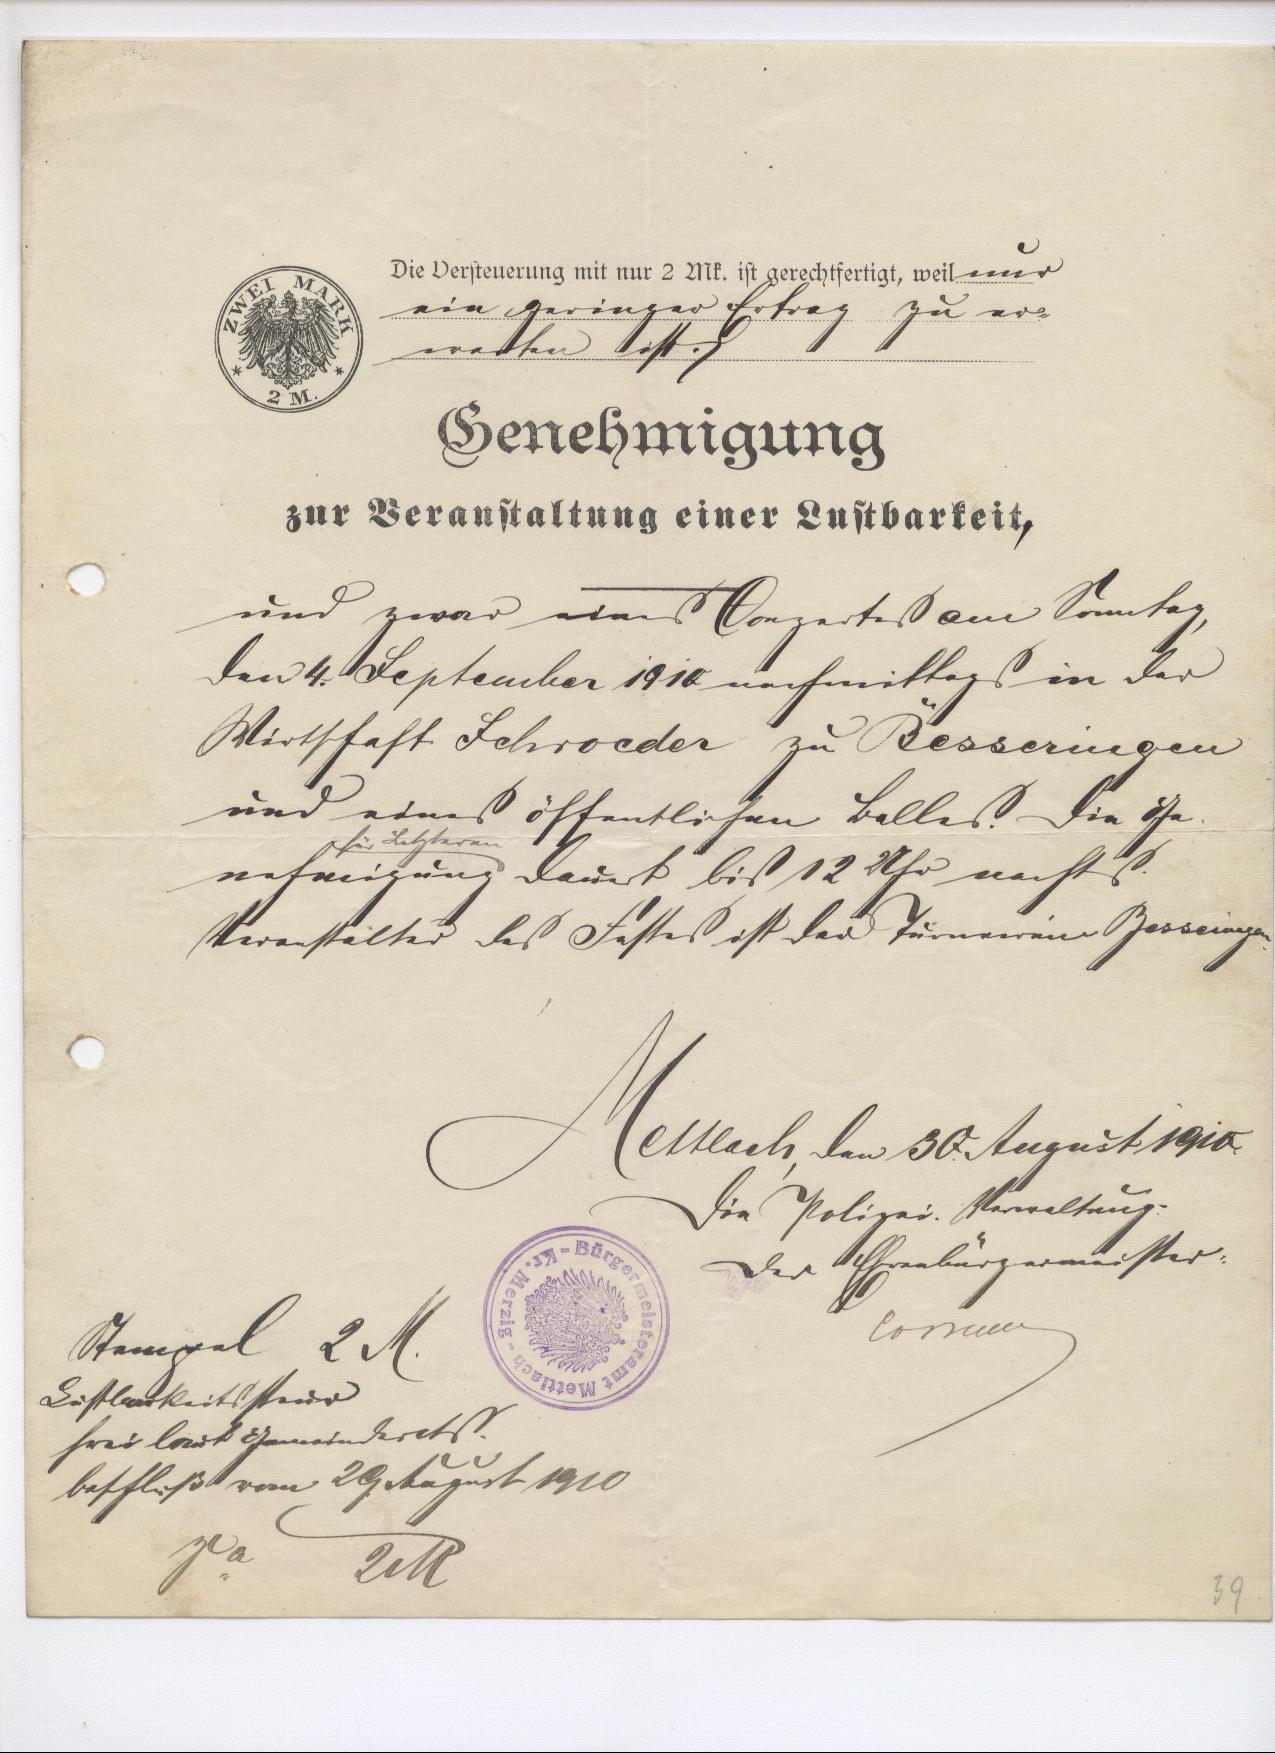 Die Versteuerung mit nur 2 Mk. ist gerechtfertigt, weil nur
ein geringer Ertrag zu er-
warten ist.
ZWEI MARK
2 M.
Genehmigung
zur Veranstaltung einer Lustbarkeit,
und zwar eines Conzertes am Sonntag,
den 4. September 1910 nachmittags in der
Wirtschaft Schroeder zu Besseringen
und eines öffentlichen Balles. Die Ge-
für Letzteren
nehmigung dauert bis 12 Uhr nachts.
Veranstalter des Festes ist der Turnverein Besseringen.
Mettlach, den 30. August 1910.
Die Polizei-Verwaltung:
Der Ehrenbürgermeister:
Bürgermeisteramt Mettlach - Kr. Merzig -
Stempel 2 M.
Lustbarkeitssteuer
frei laut Gemeinderats-
beschluß vom 29. August 1910
2 M
39